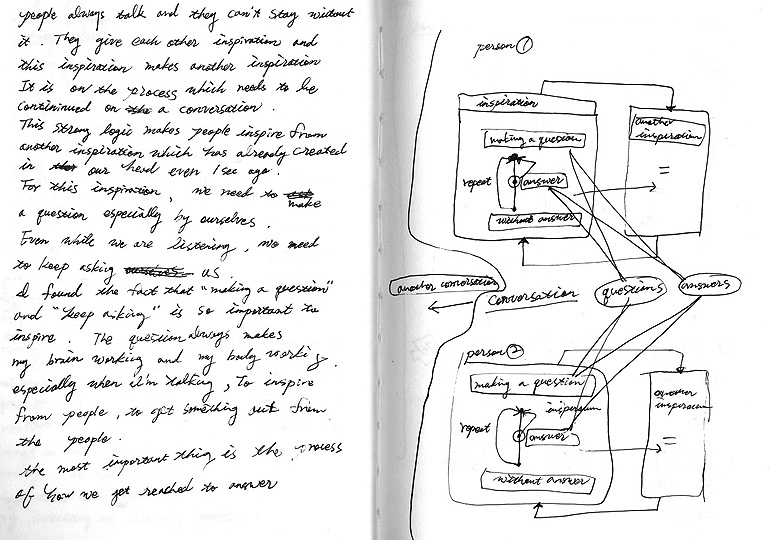 people always talk and they can't stay without
it. They give each other inspiration and
this inspiration makes another inspiration
It is on the process which needs to be
continuned on the a conversation.
This strong logic makes people inspire from
another inspiration which has already created
in our head even 1 sec ago.
For this inspiration, we need to ask make
a question especially by ourselves.
Even while we are listening, we need
to keep asking ourselves us.
I found the fact that "making a question"
and "keep asking" is so important to
inspire. The question always makes
my brain working and my body working.
especially when i'm talking, To inspire
from people, to get something out from
the people.
the most important thing is the process
of how we get reached to answer
person ①
inspiration
making a question
repeat
answer
without answer
another inspiration
=
another conversation
conversation
questions
answers
person ②
making a question
inspiration
repeat
answer
without answer
another
inspiration
=